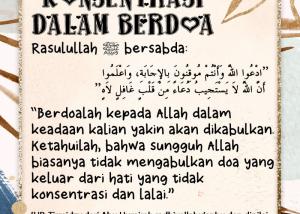 KONSENTRASI
DALAM BERDOA
Rasulullah ﷺ bersabda:
"ادْعُوا اللَّهَ وَأَنْتُمْ مُوقِنُونَ بِالإِجَابَةِ، وَاعْلَمُوا
أَنَّ اللَّهَ لاَ يَسْتَجِيبُ دُعَاءً مِنْ قَلْبٍ غَافِلٍ لاَهٍ"
"Berdoalah kepada Allah dalam
keadaan kalian yakin akan dikabulkan.
Ketahuilah, bahwa sungguh Allah
biasanya tidak mengabulkan doa yang
keluar dari hati yang tidak
konsentrasi dan lalai."